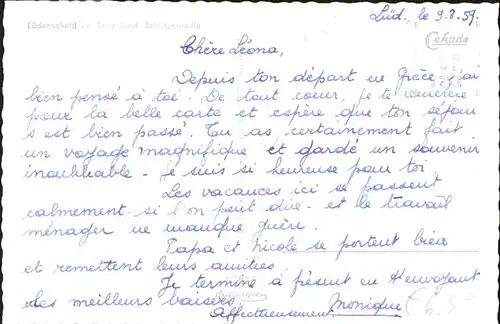 Lüdenscheid im Sauerland Schützenhalle
Lüd. le 9.8.59.
Cekade
Chère Léona,
Depuis ton départ en Grèce j'ai
bien pensé à toi. De tout coeur, je te remercie
pour la belle carte et espère que ton séjour
s'est bien passé. Tu as certainement fait
un voyage magnifique et gardé un souvenir
inoubliable - je suis si heureuse pour toi
Les vacances ici se passent
calmement si l'on peut dire - et le travail
ménager ne manque guère.
Papa et Nicole se portent bien
et remettent leurs amitiés
Je termine à présent en t'envoyant
des meilleurs baisers
Affectueusement, Monique